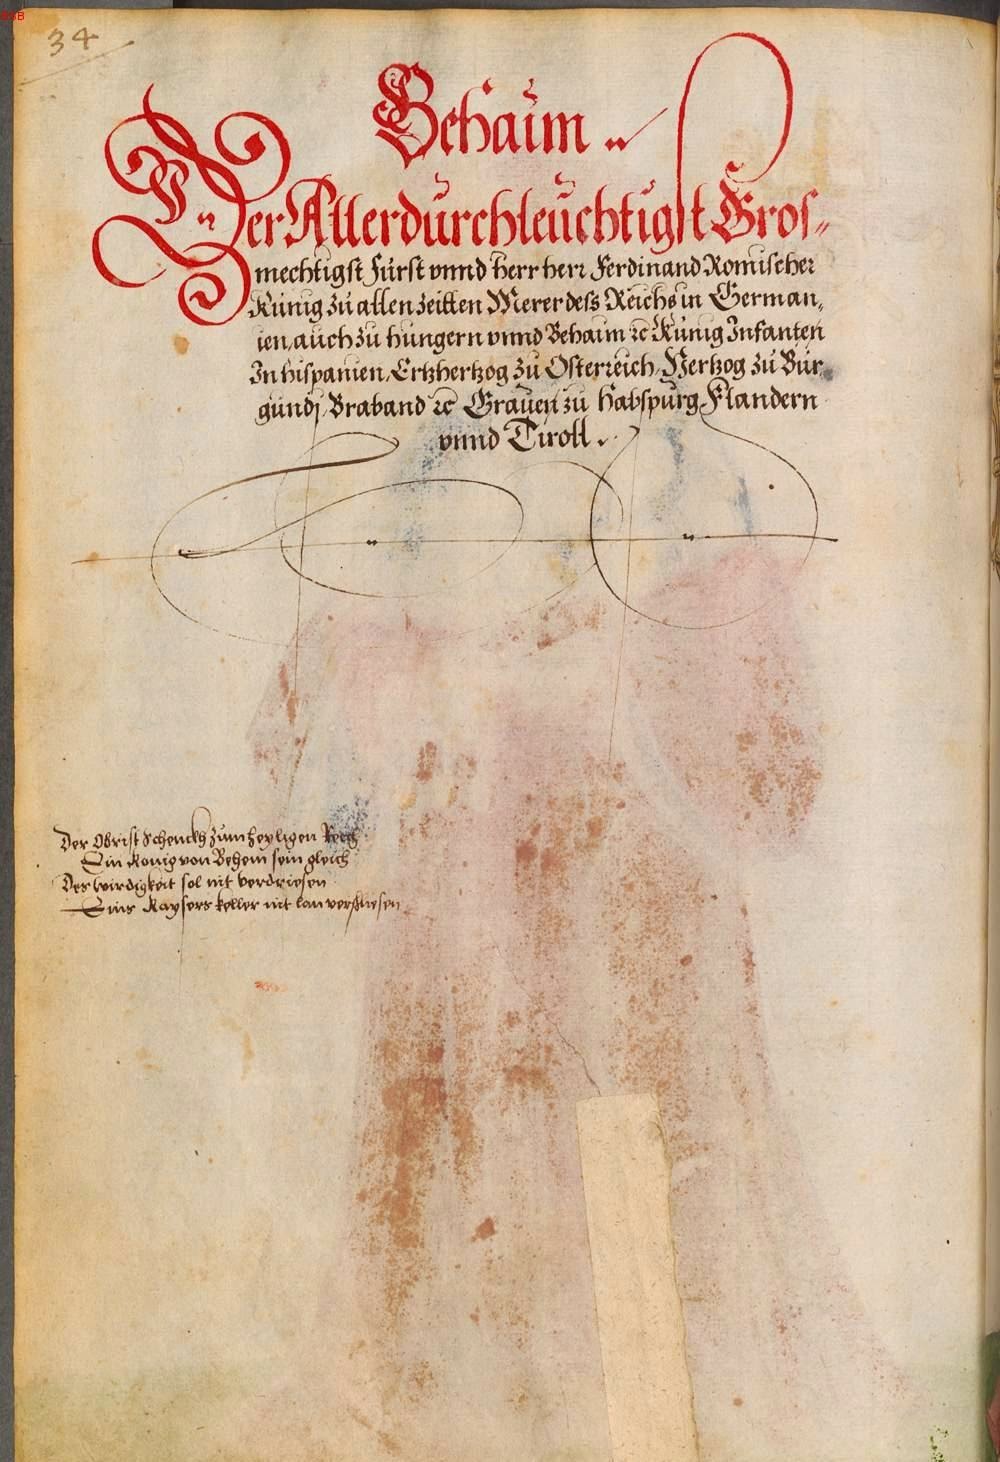 BSB
34
Behaim
V
Der Allerdurchleuchtigst Gros-
mechtigst Fürst vnnd herr herr Ferdinand Romischer
Künig zü allen zeitten Merer dess Reichs in German,
ien, auch zu hüngern vnnd Behaim rc Künig Infanten
In hispanien, Ertzhertzog zu Osterreich, Hertzog zü Bür,
gündj, Braband rc Graüen zu habspurg, Flandern
vnnd Tiroll.
Der Obrist Schenckh zum heyligen Reich
Ein Konig von Behem sein gleich
Des wirdigkeit sol nit verdriesen
Eins Kaysers keller nit lan verschliesen